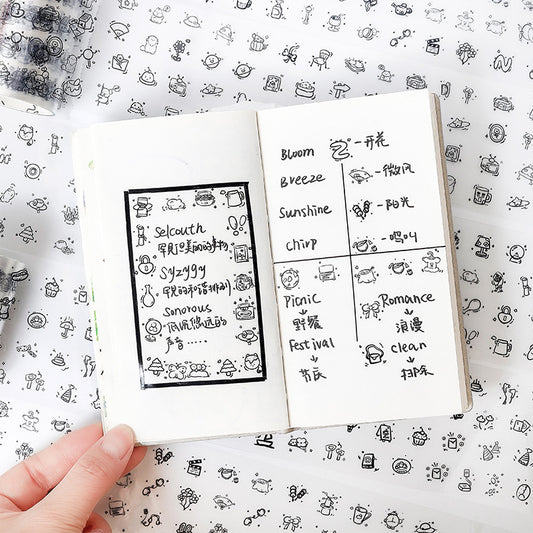 Selcouth
罕见但美丽的事物
Syzygy
罕见的和谐排列
Sonorous
低沉洪亮的
声音 .....
Bloom - 开花
Breeze - 微风
Sunshine - 阳光
Chirp - 鸣叫
Picnic
野餐
Festival
节庆
Romance
浪漫
clean
扫除